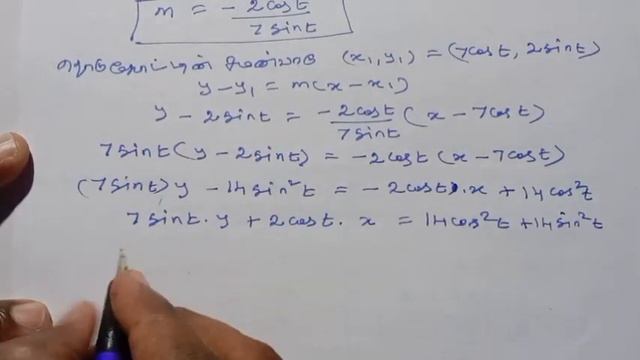 m = - 2cost / 7sint
தொடுகோட்டின் சமன்பாடு (x₁, y₁) = (7cost, 2sint)
y - y₁ = m(x - x₁)
y - 2sint = -2cost / 7sint (x - 7cost)
7sint(y - 2sint) = -2cost(x - 7cost)
(7sint)y - 14sin²t = -2cost). x + 14cos²t
7sint. y + 2cost. x = 14cos²t + 14sin²t